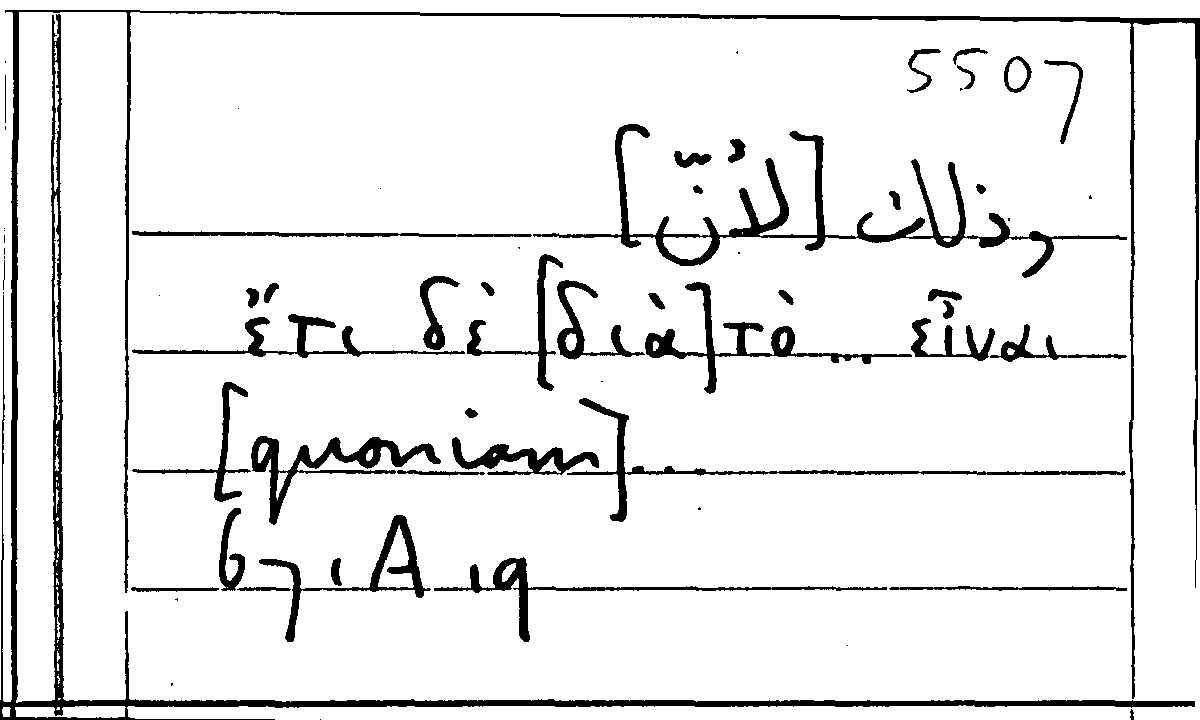 5507
وذلك [لأنّ]
ἔτι δὲ [διὰ] τὸ ... εἶναι
[quoniam] ...
67, A, 9